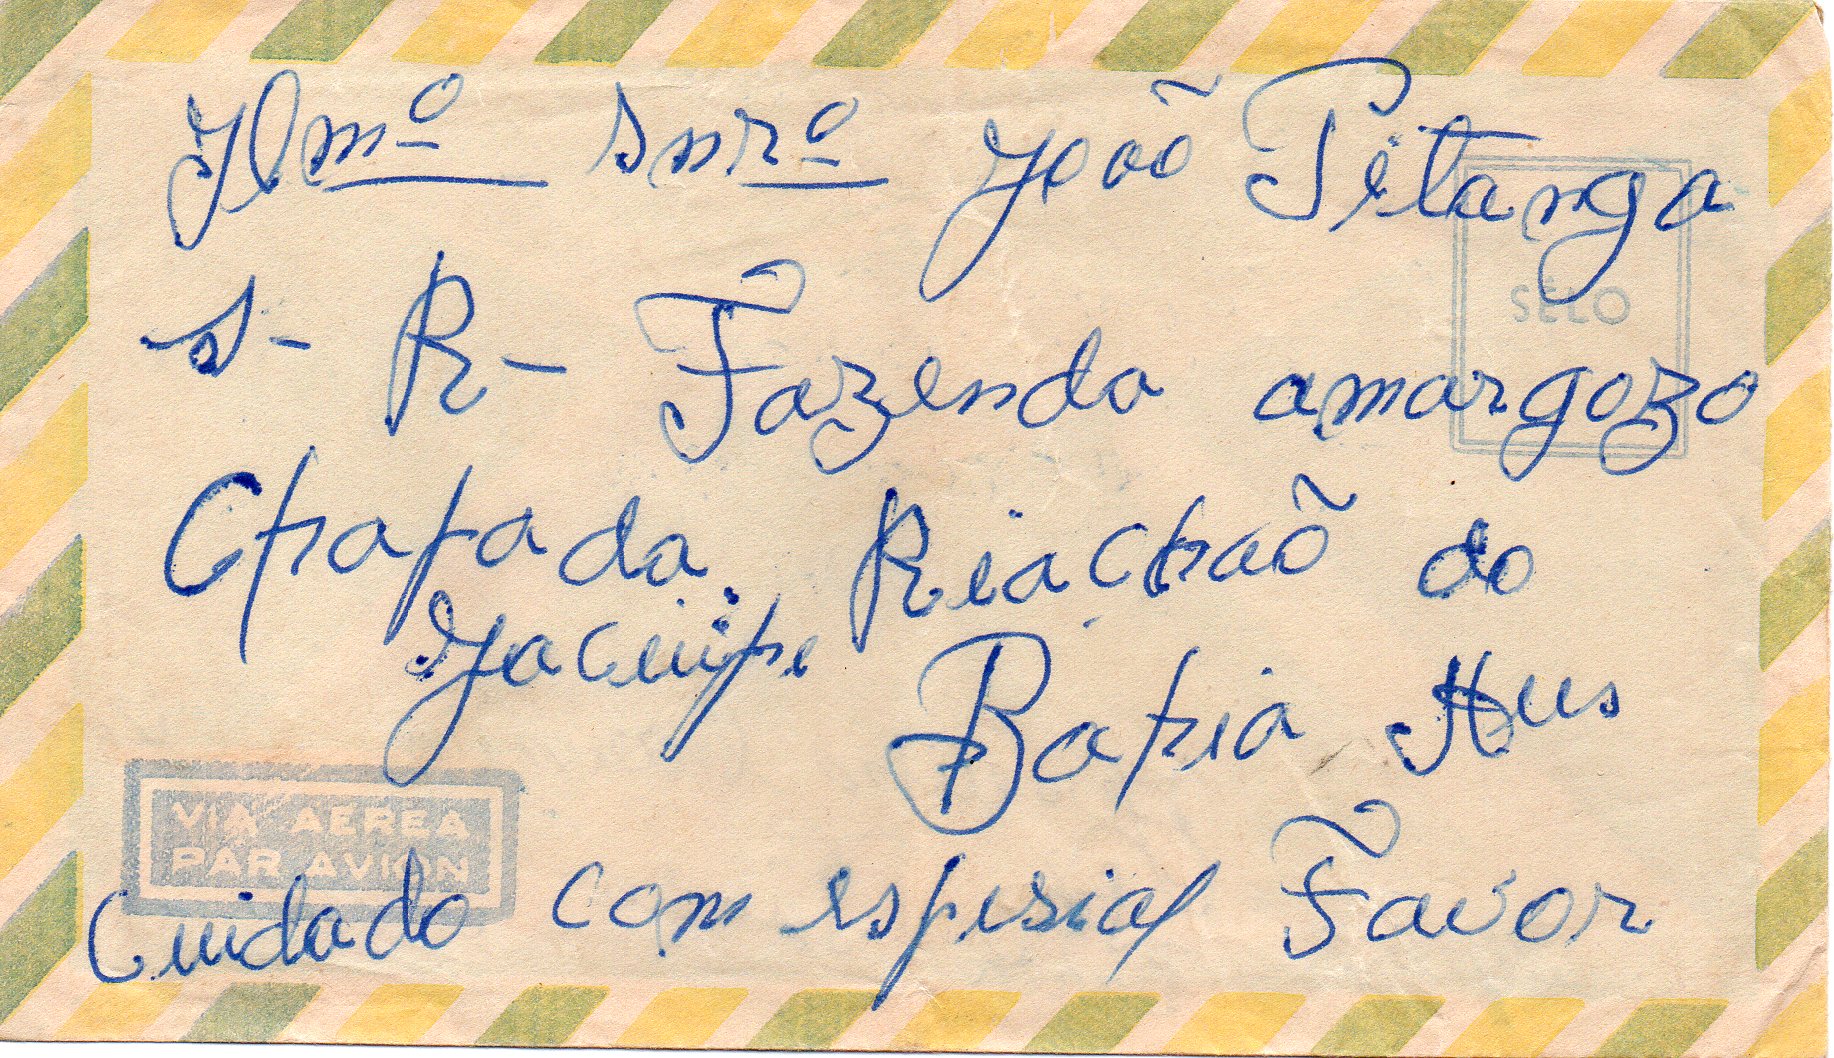 Ilmº Snrº João Pitanga
SELO
S- R- Fazenda amargozo
Chapada Riachaõ do
Jacuipe Bahia
VIA AEREA
PAR AVION
Cuidado com espesial Favor